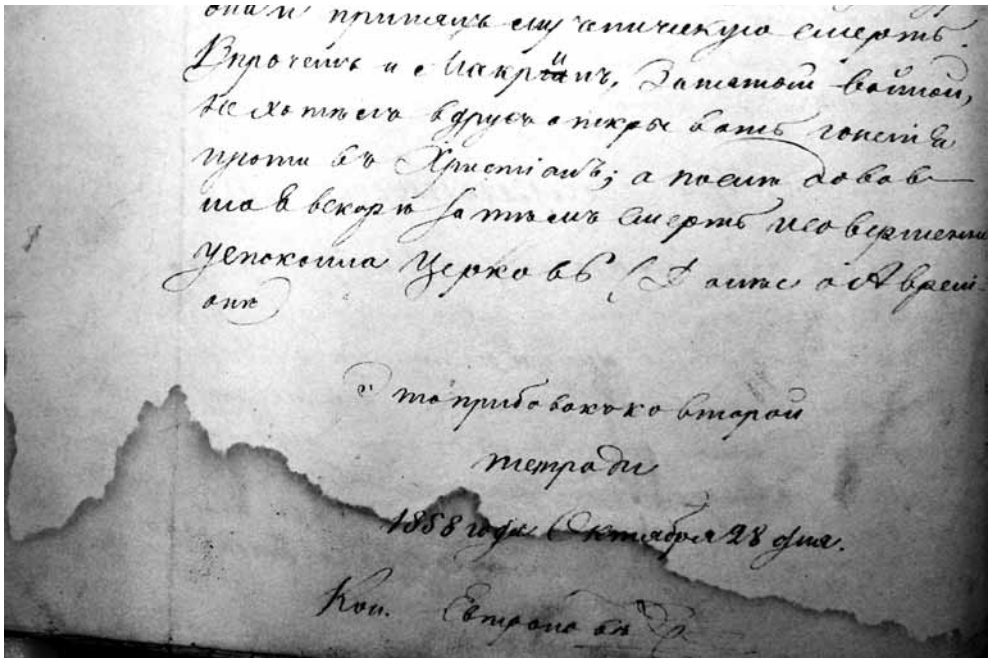 они и принялъ мученическую смерть.
Впрочемъ и Макринъ, занятый войной,
не хотелъ вдругъ открывать гоненія
противъ Христіанъ; а последовав-
шая вскоре затемъ смерть его совершенно
успокоила Церковь (Далее о Авреліане)
Это прибавка ко второй
тетради
1858 года Октября 28 дня.
Коп. Евтроповъ